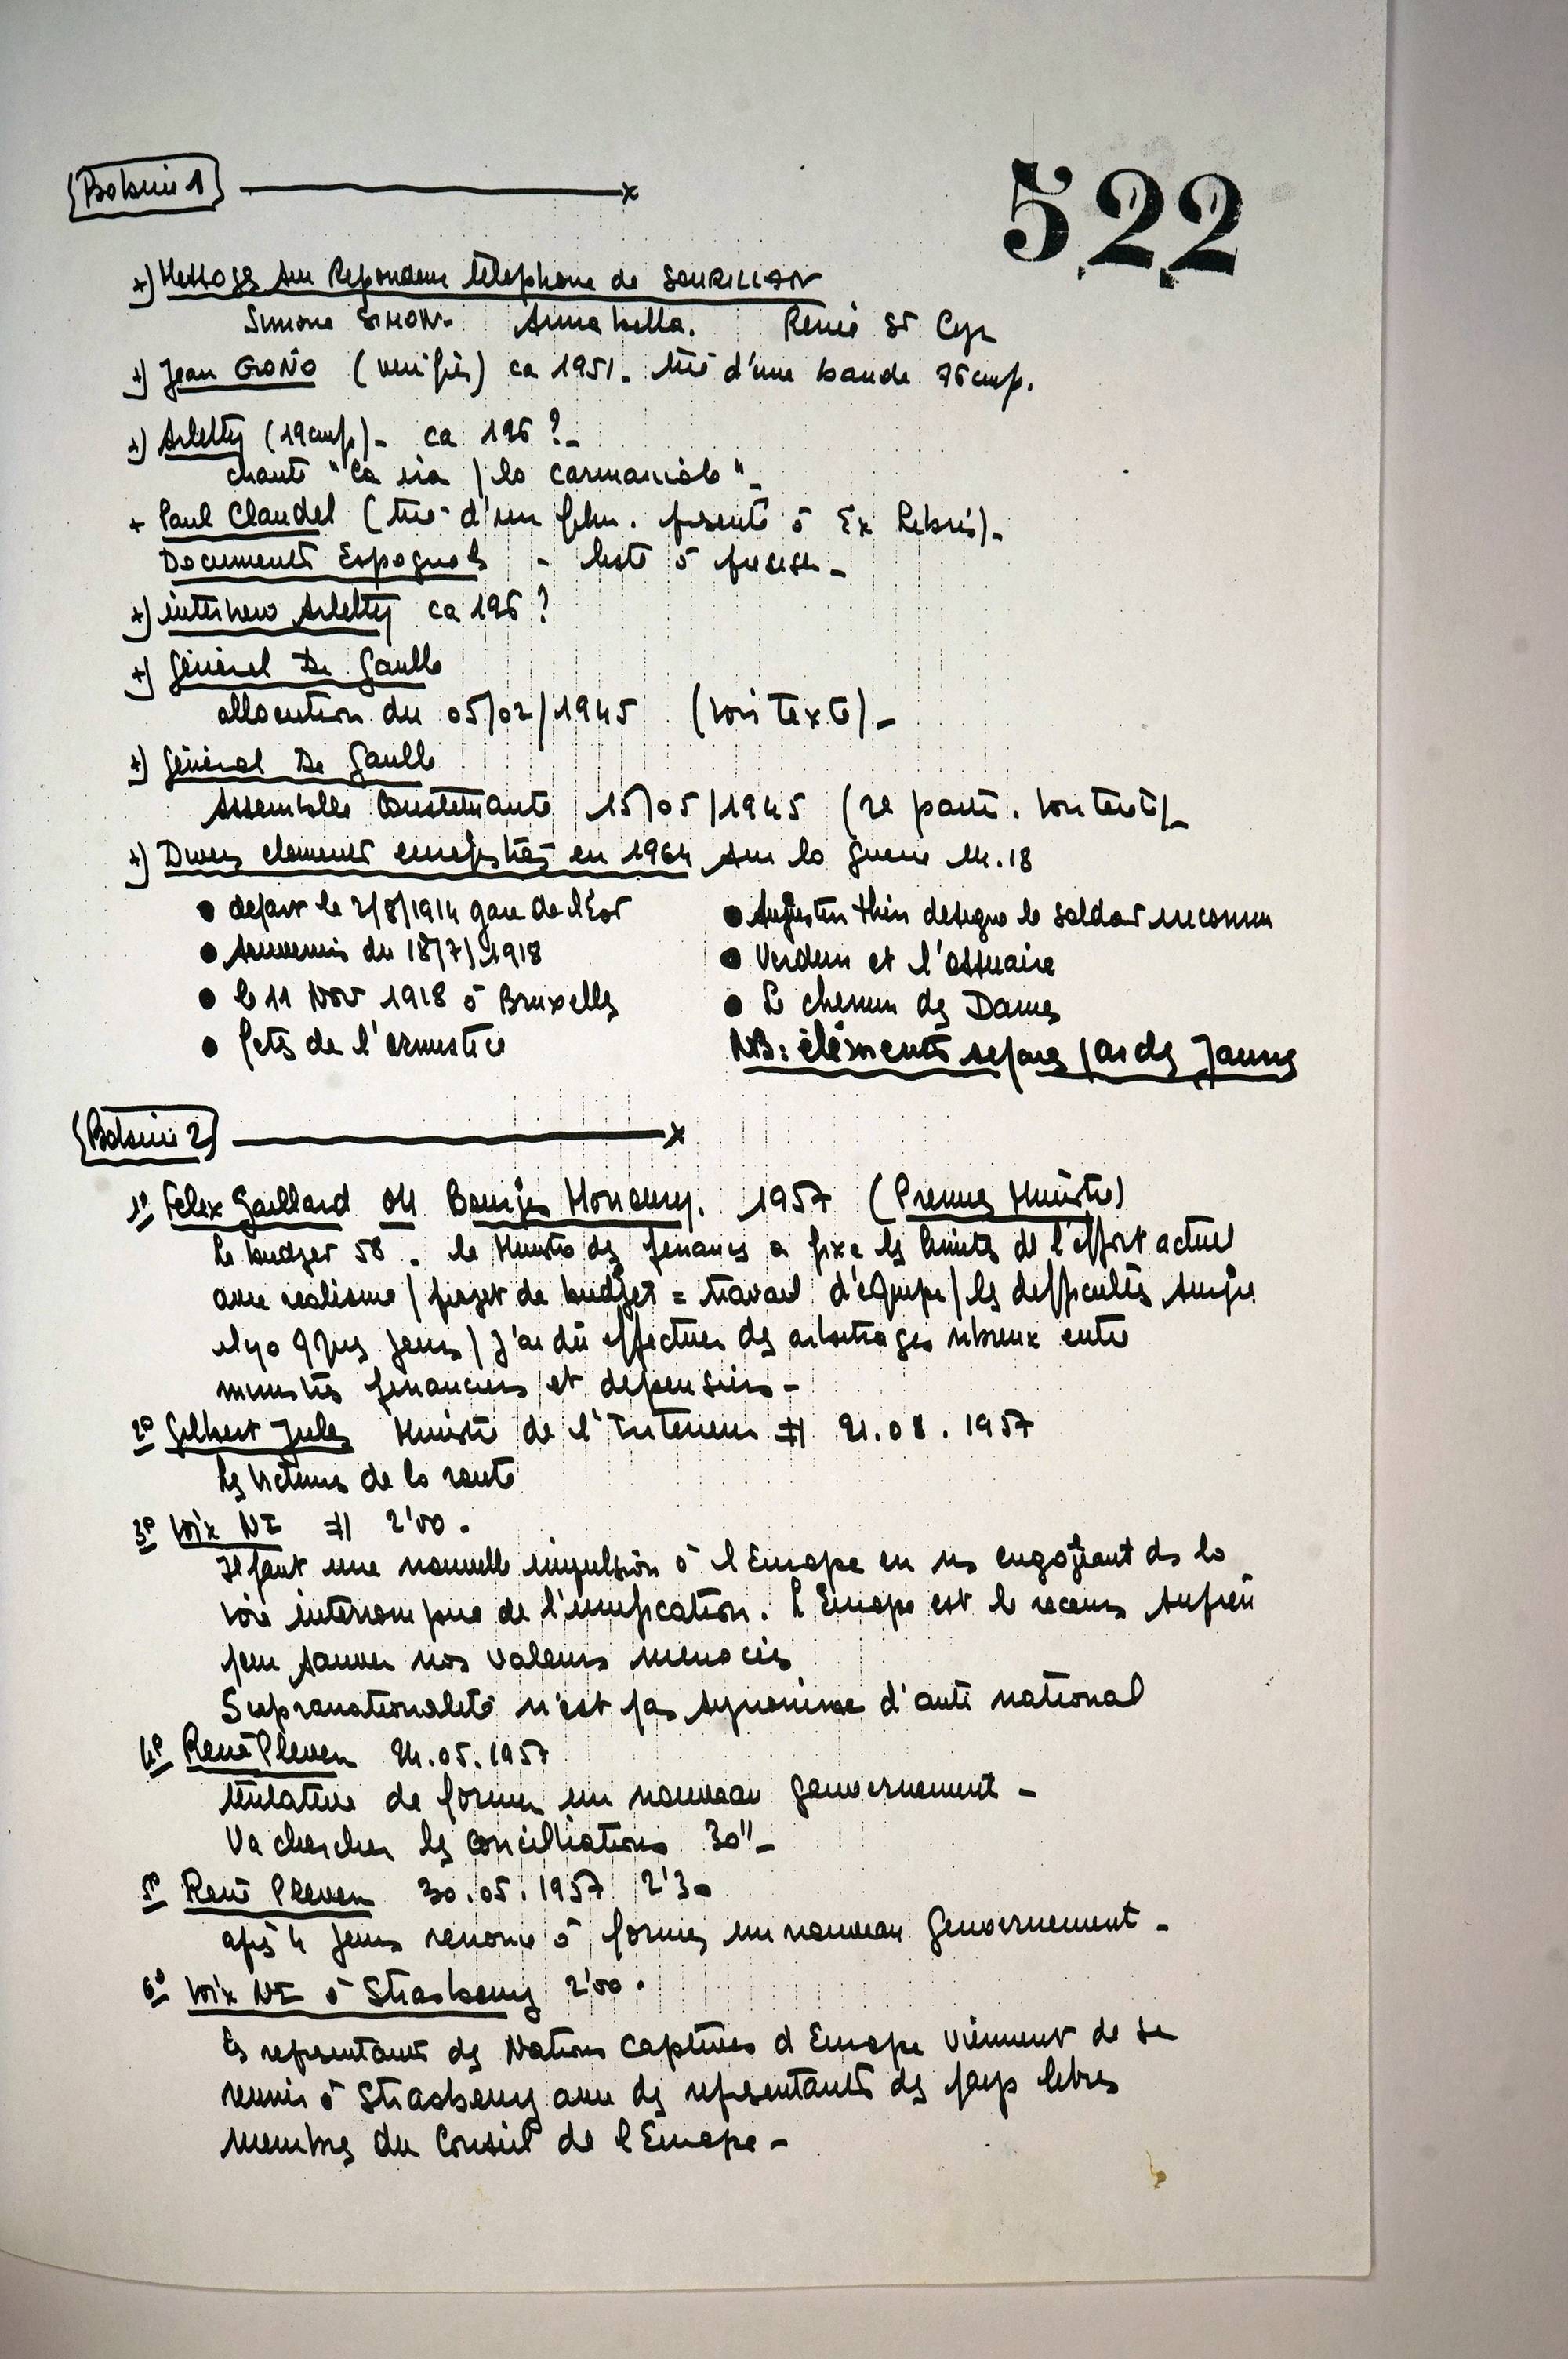 Bobine 1
522
+) Messages sur Repondeur téléphone de SOURILLAN
Simone SIMON. Annabella. Renée St Cyr
+) Jean GIONO (verifiés) ca 1951. tiré d'une bande 76cm/s.
+) Arletty (19cm/s) - ca 196 ? -
chante "ça ira / la carmaniole" -
+ Paul Claudel (tiré d'un film. presenté à Ex Libris) -
Documents Espagnols - liste à preciser -
+) interview Arletty ca 196 ?
+) Général De Gaulle
allocution du 05/02/1945 (voir Texte) -
+) Général De Gaulle
Assemblée Constituante 15/05/1945 (2e partie. voir texte) -
+) Divers elements enregistrés en 1964 sur la guerre 14.18
● depart le 2/8/1914 gare de l'Est
● souvenirs du 18/7/1918
● le 11 Nov 1918 à Bruxelles
● fetes de l'armistice
● Augustin Thin designe le soldat inconnu
● Verdun et l'ossuaire
● Le chemin des Dames
NB: éléments separés par des Jaunes
Bobine 2
1° Felix Gaillard ou Bourges Monoury. 1957 (Premier Ministre)
Le budget 58. le Ministre des finances a fixé les limites de l'effort actuel
avec realisme / projet de budget = travail d'équipe / les difficultés surgies
il y a qques jours / j'ai dû effectuer des arbitrages nbreux entre
ministres financiers et depensiers -
2° Gilbert Jules Ministre de l'Interieur # 21.08.1957
les victimes de la route
3° Voix NI # 2'00.
Il faut une nouvelle impulsion à l'Europe en ns engageant ds la
voie interrompue de l'unification. L'Europe est le recours supreme
pour sauver nos valeurs menacées
Supranationalité n'est pas synonime d'anti national
4° René Pleven 24.05.1957
tentative de former un nouveau gouvernement -
Va chercher les concilliations 30" -
5° René Pleven 30.05.1957 2'30
après 4 jours renonce à former un nouveau Gouvernement -
6° Voix NI à Strasbourg 2'00.
Les representants des Nations captives d'Europe viennent de se
reunir à Strasbourg avec des representants des pays libres
membres du Conseil de l'Europe -